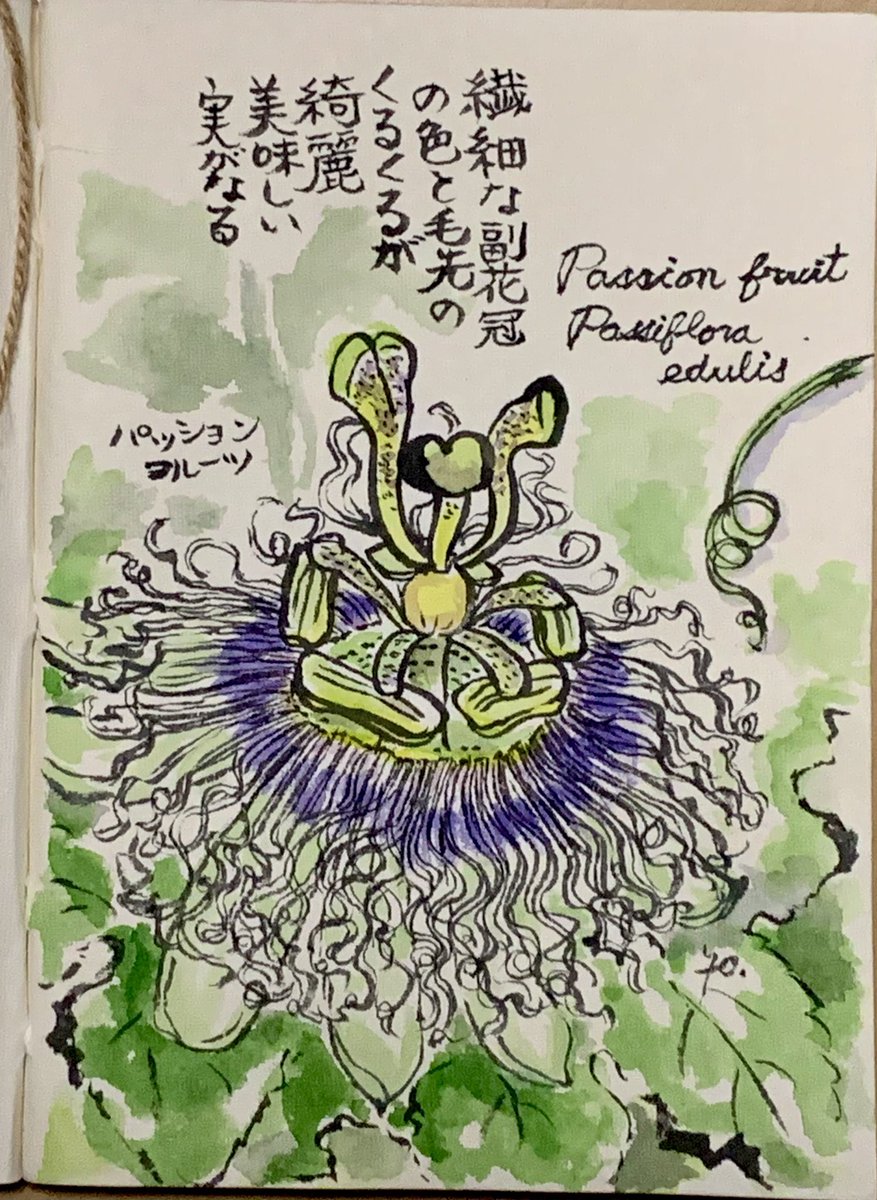 繊細な副花冠
の色と毛先の
くるくるが
綺麗
美味しい
実がなる
Passion fruit
Passiflora
edulis
パッション
フルーツ